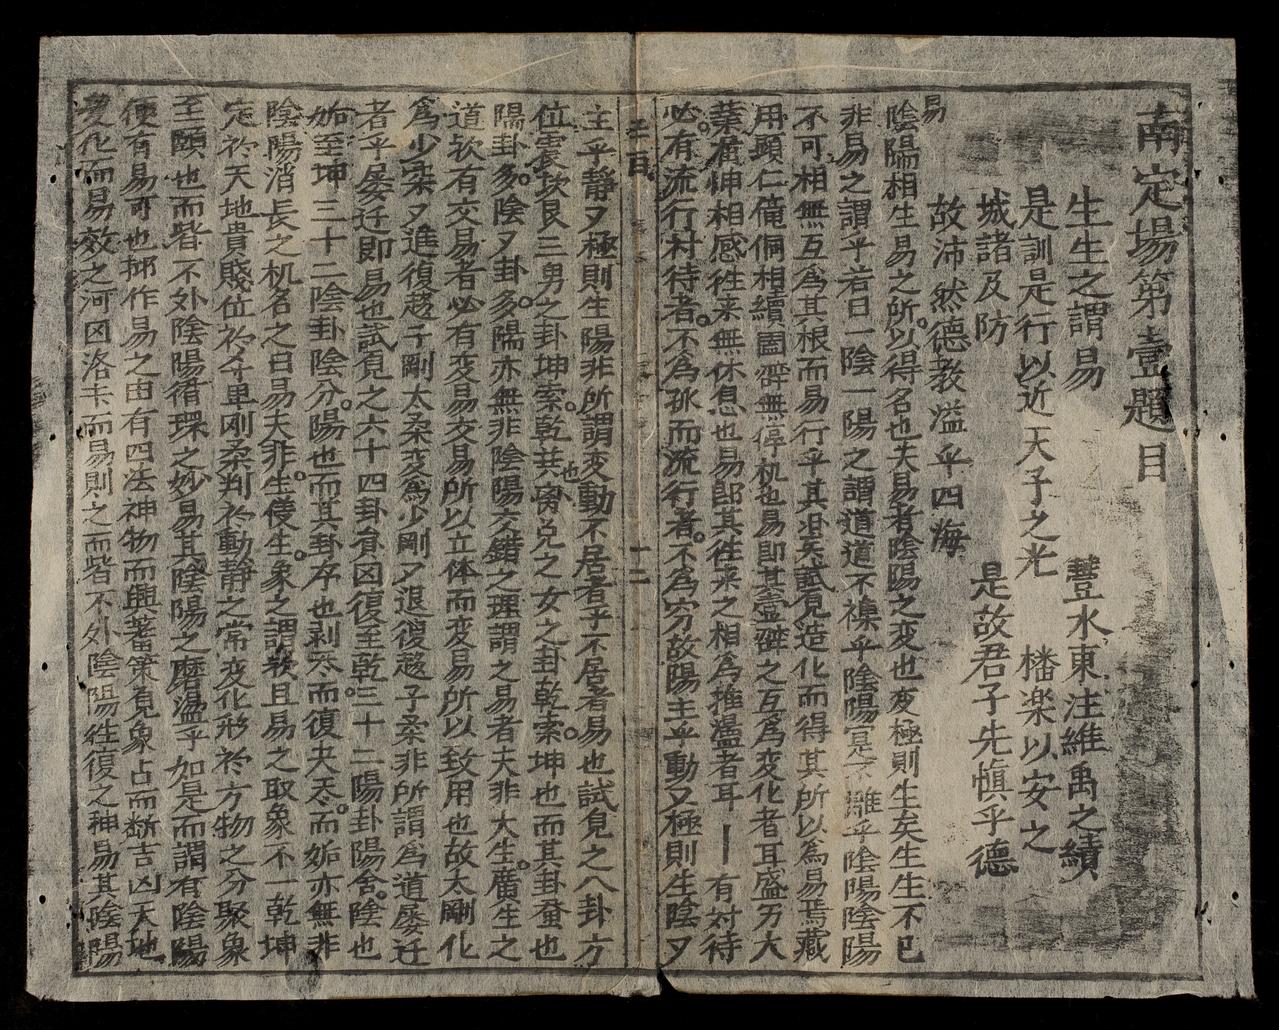 南定場第壹題目
生生之謂易　豐水東注維禹之績
是訓是行以近天子之光　播楽以安之
城諸及防　是故君子先慎乎德
故沛然德教溢乎四海
易
陰陽相生易之所以得名也夫易者陰陽之变也变極則生矣生生不已
非易之謂乎若曰一陰一陽之謂道道不襍乎陰陽寔不離乎陰陽陰陽
不可相無互爲其根而易行乎其沿矣試見造化而得其所以爲易焉藏
用顕仁俻侗相續啚癖無停机也易即其壼癖之互爲变化者耳盛刃大
業廣坤相感徃来無休息也易郎其徃来之相爲推盪者耳｜有对待
必有流行对待者不爲孤而流行者不爲穷故陽主乎動又極則生陰又
主乎靜又極則生陽非所謂变動不居者乎不居者易也試見之八卦方
位震坎艮三男之卦坤索乾共也离兌之女之卦乾索坤也而其卦蚕也
陽卦多陰又卦多陽亦無非陰陽交錯之理謂之易者夫非大生廣生之
道欤有交易者必有变易交易所以立体而变易所以致用也故太剛化
爲少柔又進復趍于剛太柔变爲少剛又退復趍于柔非所謂爲道屡迁
者乎屡迁即易也試見之六十四卦有囟復至乾三十二陽卦陽舍陰也
姤至坤三十二陰卦陰分陽也而其卦序也剥尽而復夬尽而姤亦無非
陰陽消長之机名之曰易夫非生生傻生象之謂歟且易之取象不一乾坤
定於天地貴賤位於千里刚柔判於動靜之常变化形於方物之分聚象
至頤也而皆不外陰陽循环之妙易其陰陽之磨盪乎如是而謂有陰陽
便有易可也抑作易之由有四法神物而興蓍策見象占而断吉凶天地
变化而易效之河囟洛未而易則之而皆不外陰陽徃復之神易其陰陽